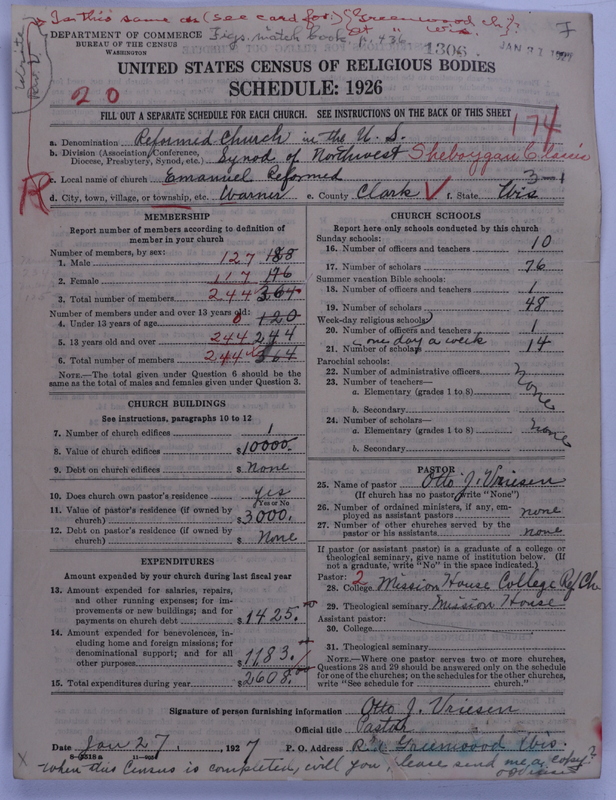 Is this same as (see card for) (Greenwood ch)?
DEPARTMENT OF COMMERCE Figs. match book p. 436 Wis. F
BUREAU OF THE CENSUS 1306. JAN 31
WASHINGTON
UNITED STATES CENSUS OF RELIGIOUS BODIES
SCHEDULE: 1926
20
FILL OUT A SEPARATE SCHEDULE FOR EACH CHURCH. SEE INSTRUCTIONS ON THE BACK OF THIS SHEET
174
a. Denomination Reformed Church in the U. S.
b. Division (Association, Conference, Diocese, Presbytery, Synod, etc.) Synod of Northwest Sheboygan Classis
c. Local name of church Emanuel Reformed 3-1
d. City, town, village, or township, etc. Warner e. County Clark f. State Wis
R
MEMBERSHIP
Report number of members according to definition of
member in your church
Number of members, by sex:
1. Male 127 188
2. Female 117 176
3. Total number of members 244 364
Number of members under and over 13 years old:
4. Under 13 years of age 0 120
5. 13 years old and over 244 244
6. Total number of members 244 364
NOTE.—The total given under Question 6 should be the
same as the total of males and females given under Question 3.
CHURCH BUILDINGS
See instructions, paragraphs 10 to 12
7. Number of church edifices 1
8. Value of church edifices $10000.
9. Debt on church edifices $ None
10. Does church own pastor's residence yes
(Yes or No
11. Value of pastor's residence (if owned by
church) $3000.
12. Debt on pastor's residence (if owned by
church) $ None
EXPENDITURES
Amount expended by your church during last fiscal year
13. Amount expended for salaries, repairs,
and other running expenses; for im-
provements or new buildings; and for
payments on church debt $1425.
14. Amount expended for benevolences, in-
cluding home and foreign missions; for
denominational support; and for all
other purposes $1183.
15. Total expenditures during year $2608.
CHURCH SCHOOLS
Report here only schools conducted by this church
Sunday schools:
16. Number of officers and teachers 10
17. Number of scholars 76
Summer vacation Bible schools:
18. Number of officers and teachers 1
19. Number of scholars 48
Week-day religious schools:
20. Number of officers and teachers 1
one day a week
21. Number of scholars 14
Parochial schools:
22. Number of administrative officers
23. Number of teachers—
a. Elementary (grades 1 to 8) none
b. Secondary
24. Number of scholars—
a. Elementary (grades 1 to 8) none
b. Secondary
PASTOR
25. Name of pastor Otto J. Vriesen
(If church has no pastor, write "None")
26. Number of ordained ministers, if any, em-
ployed as assistant pastors none
27. Number of other churches served by the
pastor or his assistants none
If pastor (or assistant pastor) is a graduate of a college or
theological seminary, give name of institution below. (If
not a graduate, write "No" in the space indicated.)
Pastor: 2
28. College Mission House College Rf Ch
29. Theological seminary Mission House
Assistant pastor:
30. College
31. Theological seminary
NOTE.—Where one pastor serves two or more churches,
Questions 28 and 29 should be answered only on the schedule
for one of the churches; on the schedules for the other churches,
write "See schedule for church."
Signature of person furnishing information Otto J. Vriesen
Official title Pastor
Date Jan 27, 1927 P. O. Address R. Greenwood Wis.
8—3518a
When this Census is completed, will you please send me a copy?